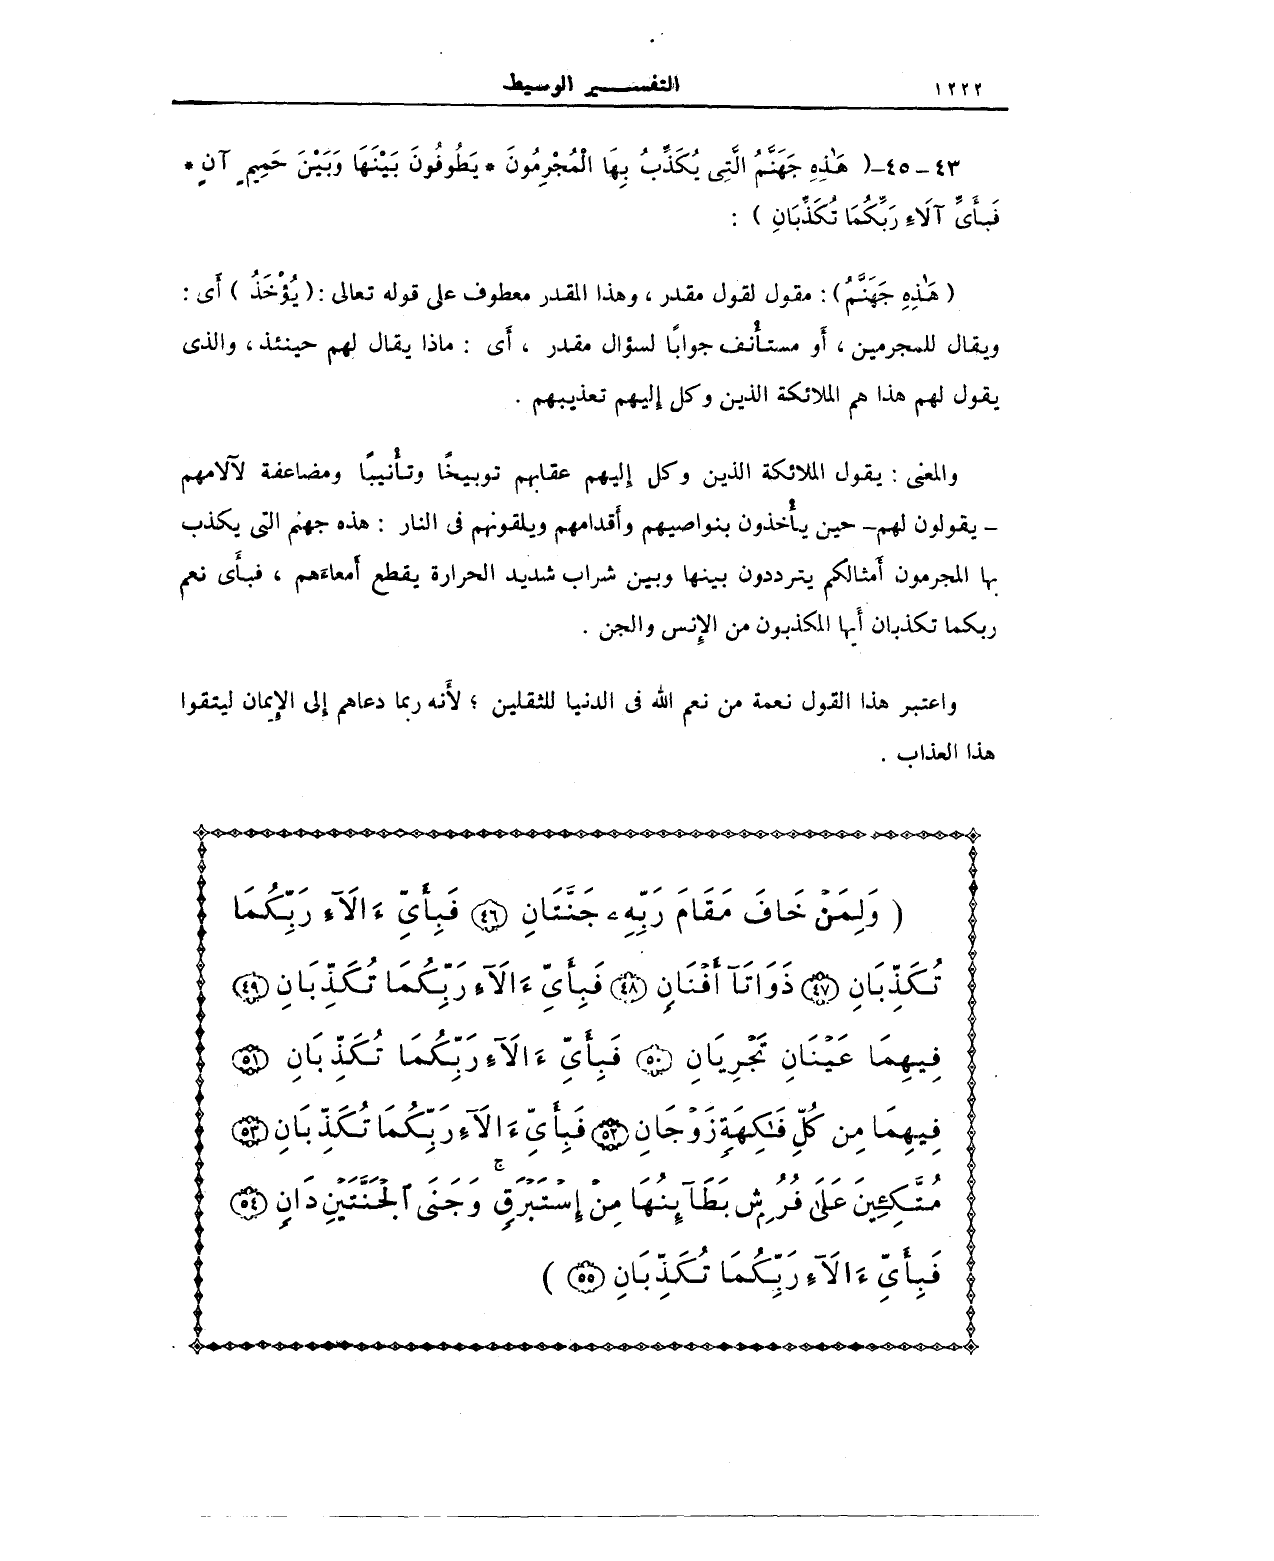 ١٢٢٢ التفسير الوسيط
٤٣ – ٤٥–( هَٰذِهِ جَهَنَّمُ الَّتِى يُكَذِّبُ بِهَا الْمُجْرِمُونَ * يَطُوفُونَ بَيْنَهَا وَبَيْنَ حَمِيمٍ آنٍ *
فَبِأَىِّ آلَاءِ رَبِّكُمَا تُكَذِّبَانِ ) :
( هَٰذِهِ جَهَنَّمُ) : مقول لقول مقدر ، وهذا المقدر معطوف على قوله تعالى :( يُؤْخَذُ ) أى :
ويقال للمجرمين ، أو مستأنف جوابًا لسؤال مقدر ، أى : ماذا يقال لهم حينئذ ، والذى
يقول لهم هذا هم الملائكة الذين وكل إليهم تعذيبهم .
والمعنى : يقول الملائكة الذين وكل إليهم عقابهم توبيخًا وتأنيبًا ومضاعفة لآلامهم
– يقولون لهم– حين يأخذون بنواصيهم وأقدامهم ويلقونهم فى النار : هذه جهنم التى يكذب
بها المجرمون أمثالكم يترددون بينها وبين شراب شديد الحرارة يقطع أمعاءهم ، فبأى نعم
ربكما تكذبان أيها المكذبون من الإنس والجن .
واعتبر هذا القول نعمة من نعم الله فى الدنيا للثقلين ؛ لأنه ربما دعاهم إلى الإيمان ليتقوا
هذا العذاب .
( وَلِمَنْ خَافَ مَقَامَ رَبِّهِۦ جَنَّتَانِ ٤٦ فَبِأَيِّ ءَالَآءِ رَبِّكُمَا
تُكَذِّبَانِ ٤٧ ذَوَاتَآ أَفْنَانٍ ٤٨ فَبِأَيِّ ءَالَآءِ رَبِّكُمَا تُكَذِّبَانِ ٤٩
فِيهِمَا عَيْنَانِ تَجْرِيَانِ ٥٠ فَبِأَيِّ ءَالَآءِ رَبِّكُمَا تُكَذِّبَانِ ٥١
فِيهِمَا مِن كُلِّ فَٰكِهَةٍ زَوْجَانِ ٥٢ فَبِأَيِّ ءَالَآءِ رَبِّكُمَا تُكَذِّبَانِ ٥٣
مُتَّكِـِٔينَ عَلَىٰ فُرُشٍۭ بَطَآئِنُهَا مِنْ إِسْتَبْرَقٍۚ وَجَنَى ٱلْجَنَّتَيْنِ دَانٍ ٥٤
فَبِأَيِّ ءَالَآءِ رَبِّكُمَا تُكَذِّبَانِ ٥٥ )